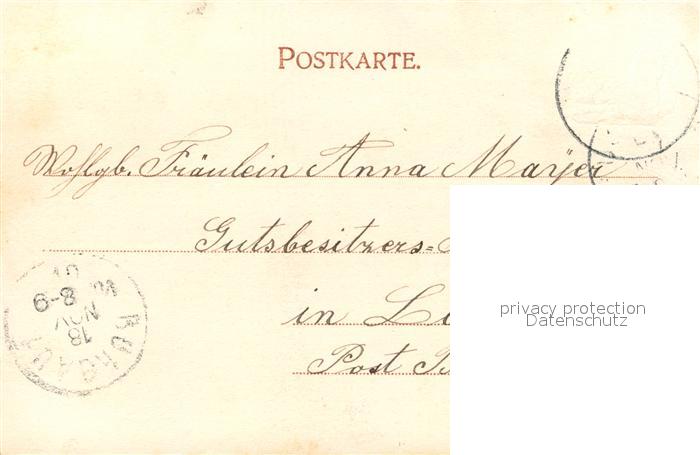 POSTKARTE.
Wohlgb. Fräulein Anna Mayer
Gutsbesitzers=
in
Post
privacy protection
Datenschutz
BURGAU
18 NOV
8-9